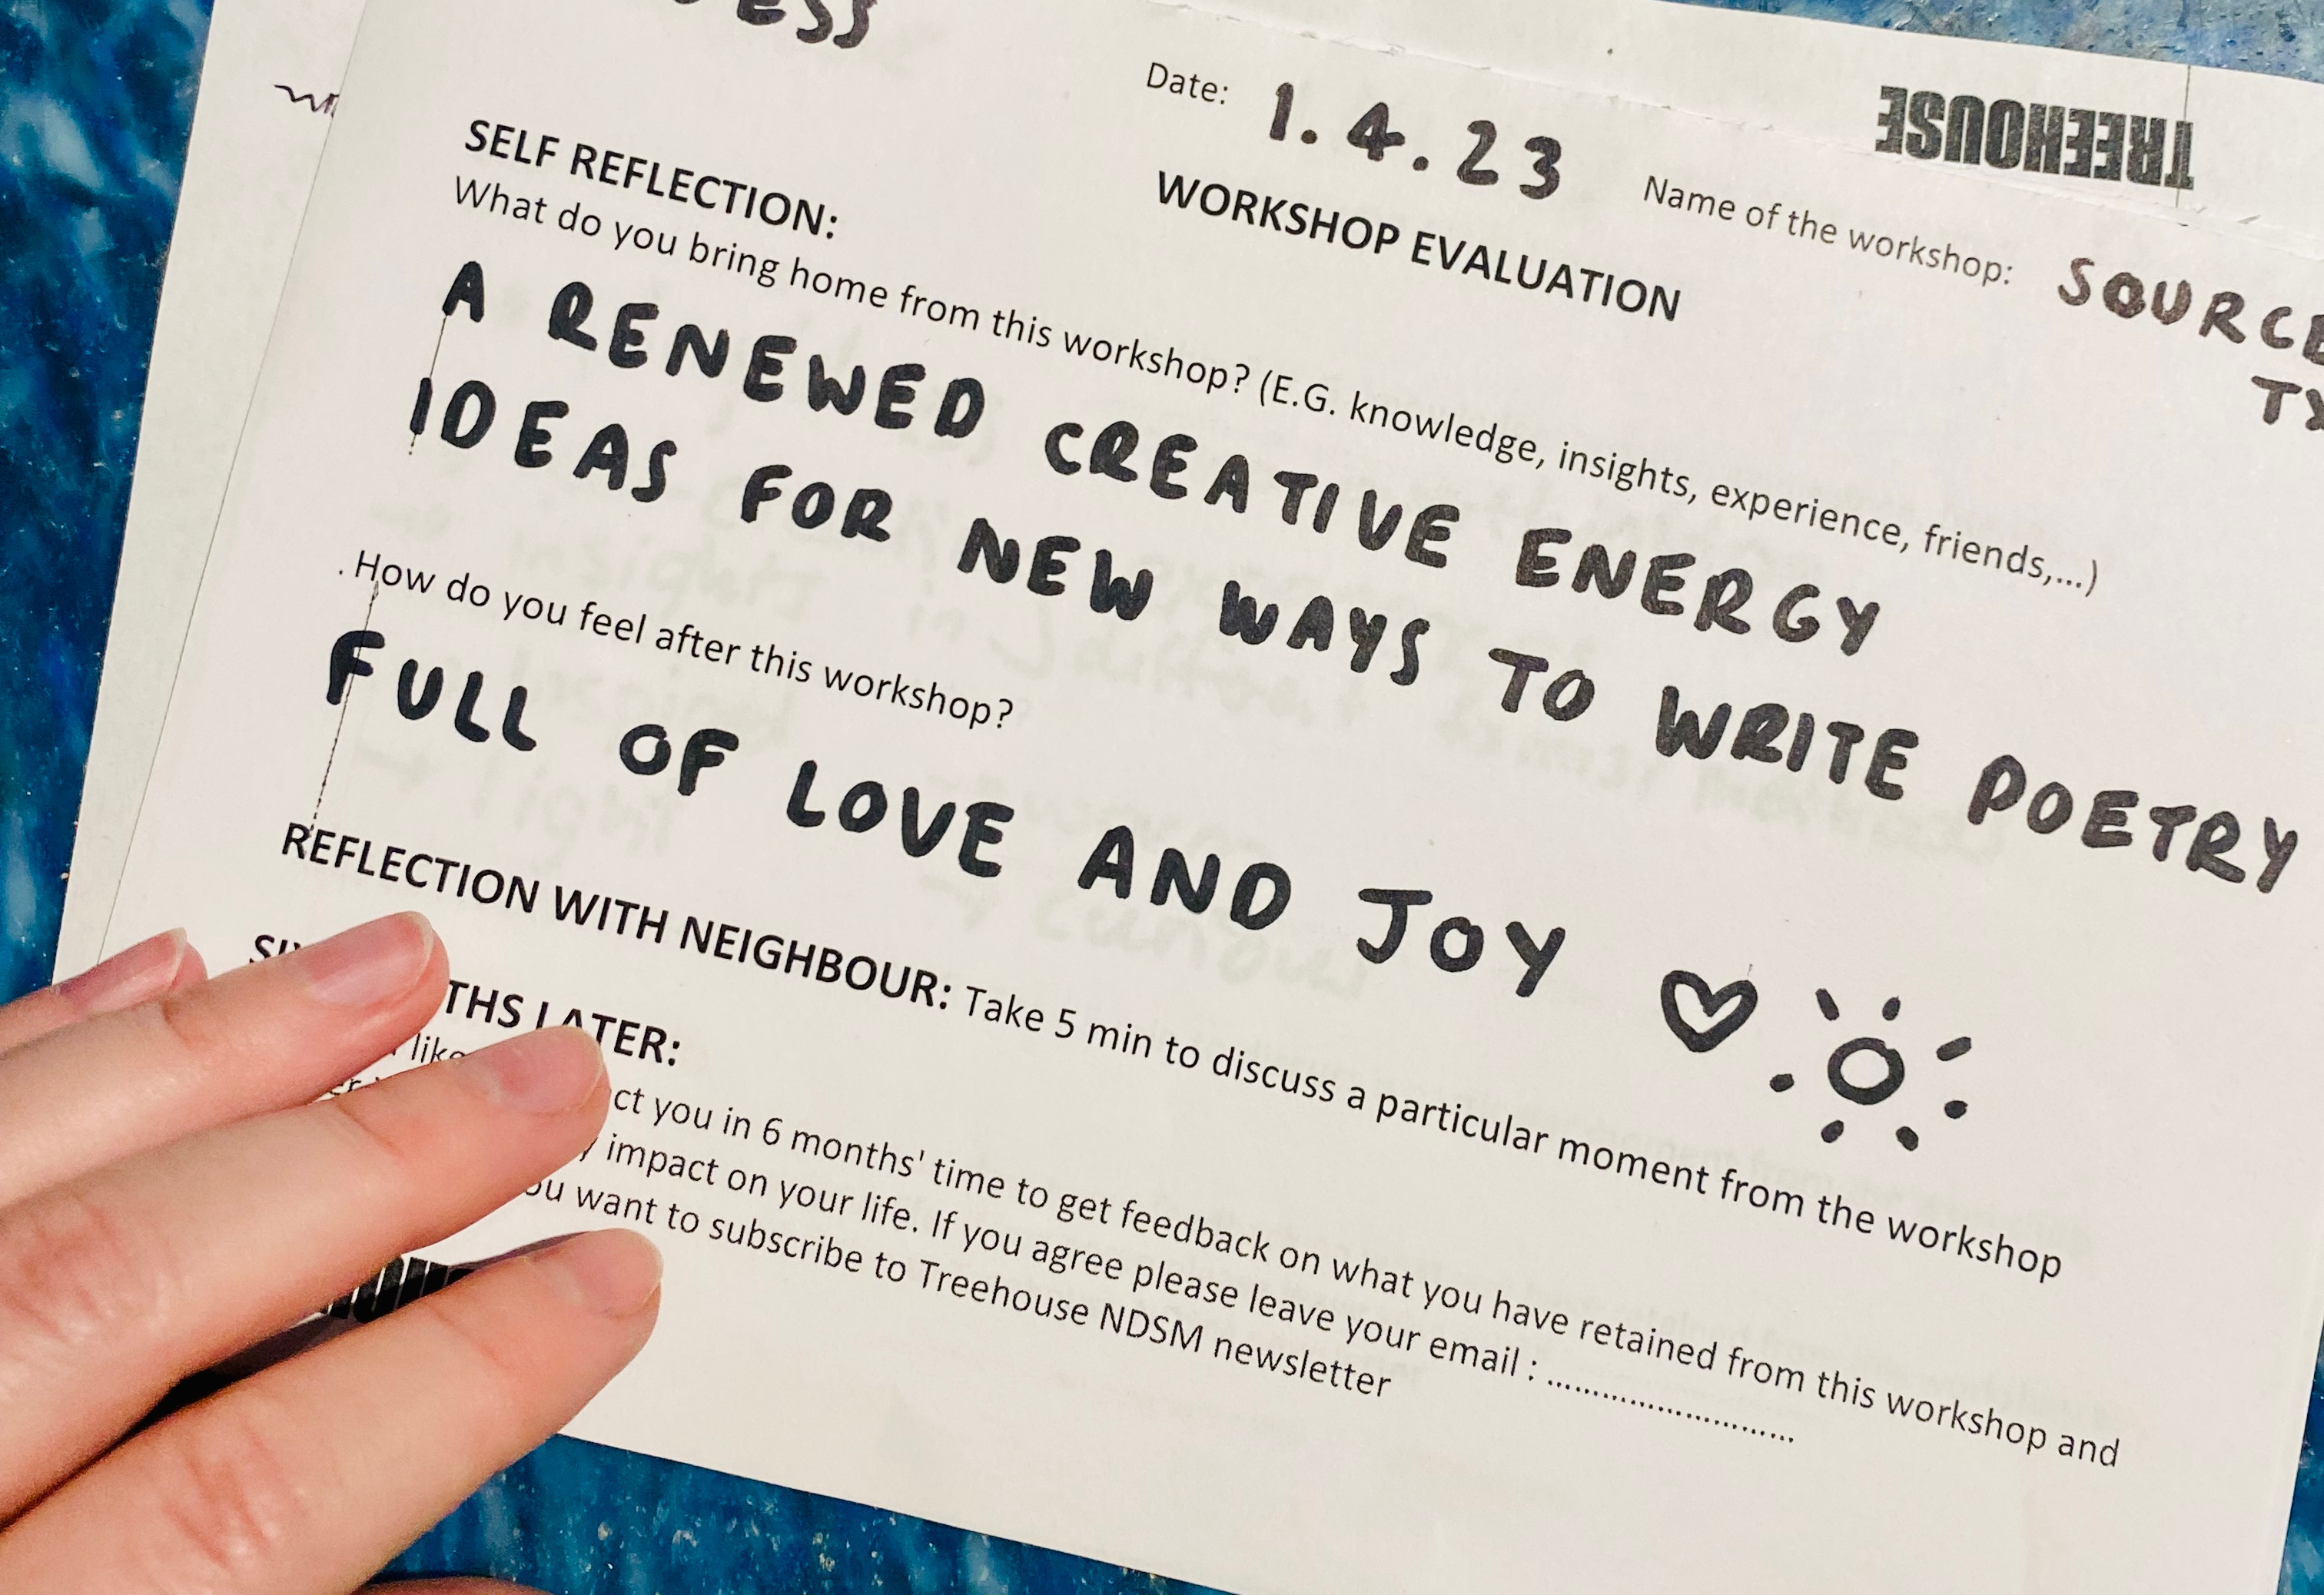 TREEHOUSE
Date: 1.4.23 Name of the workshop: SOURCE
WORKSHOP EVALUATION
SELF REFLECTION:
What do you bring home from this workshop? (E.G. knowledge, insights, experience, friends,...)
A RENEWED CREATIVE ENERGY
IDEAS FOR NEW WAYS TO WRITE POETRY
. How do you feel after this workshop?
FULL OF LOVE AND JOY
REFLECTION WITH NEIGHBOUR: Take 5 min to discuss a particular moment from the workshop
LATER:
you in 6 months' time to get feedback on what you have retained from this workshop and
impact on your life. If you agree please leave your email : ................................
want to subscribe to Treehouse NDSM newsletter